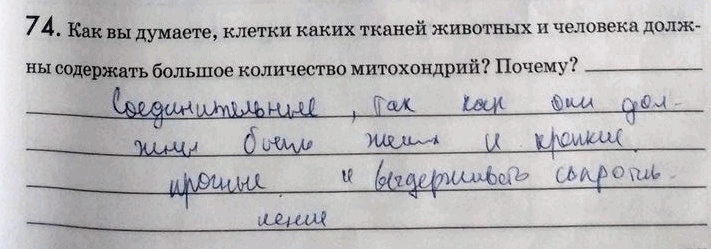 74. Как вы думаете, клетки каких тканей животных и человека долж-
ны содержать большое количество митохондрий? Почему?
Соединительные, так как они дол-
жны быть и крепкие
прочные и выдерживать сопротив-
ление